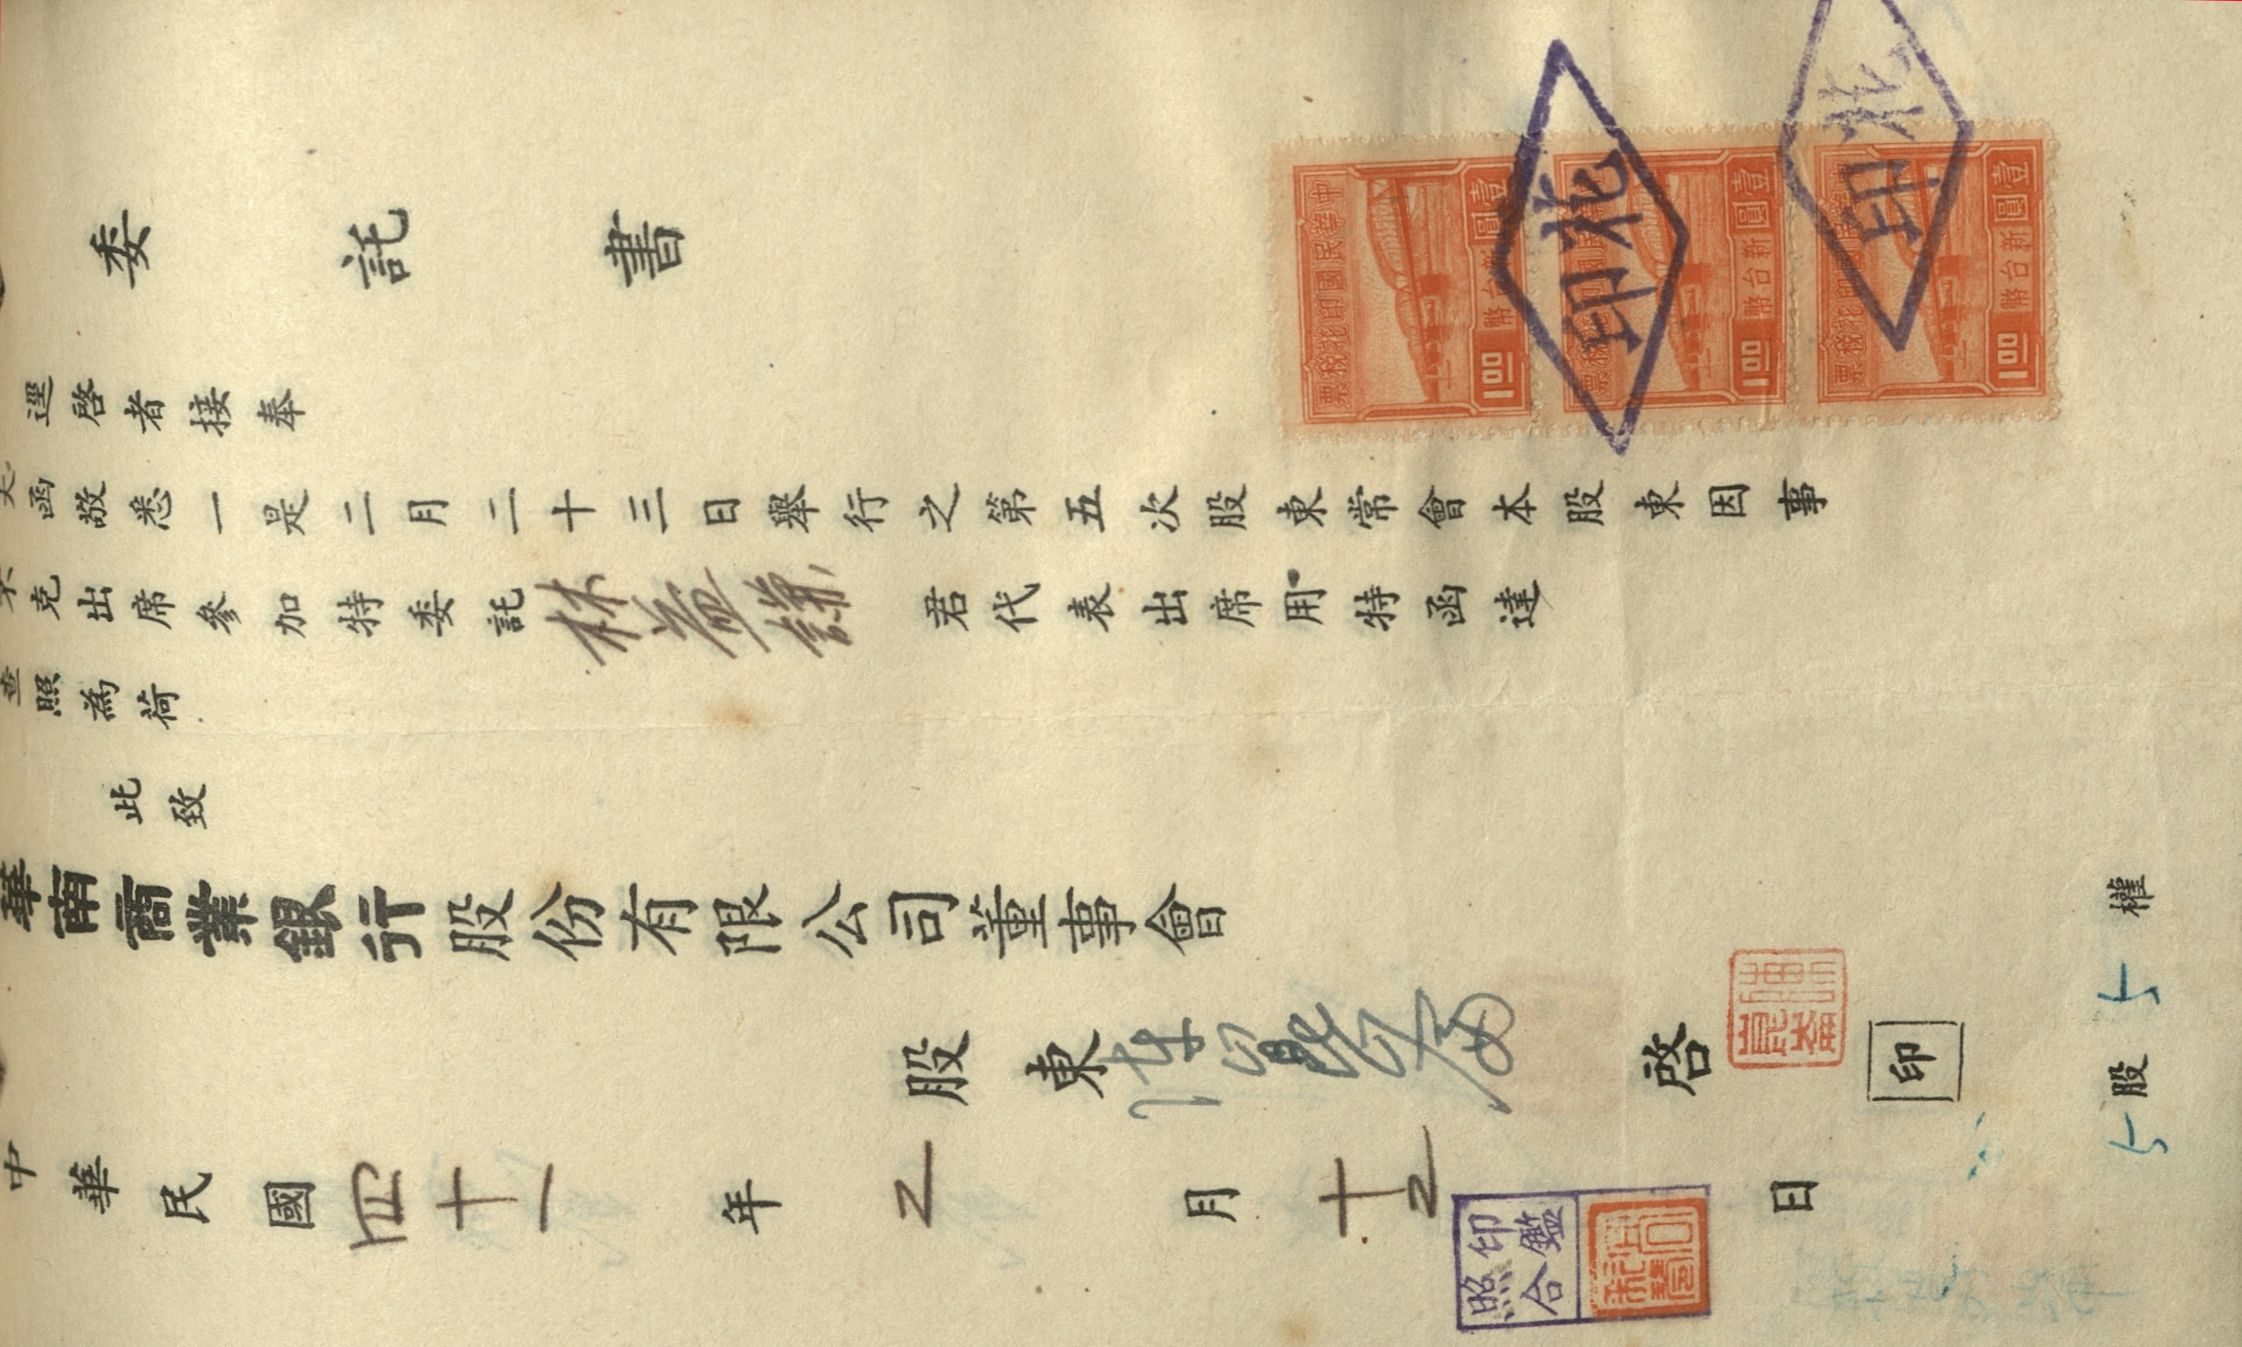 委託書
逕啓者接奉
大函敬悉一是二月二十三日舉行之第五次股東常會本股東因事
未克出席參加特委託林益謙君代表出席用特函達
查照為荷
此致
華南商業銀行股份有限公司董事會
股東 啓 印
中華民國四十一年2月十2日
5股 5權
印鑑照合
中華民國印花稅票
壹圓
新台幣
1.00
中華民國印花稅票
壹圓
新台幣
1.00
中華民國印花稅票
壹圓
新台幣
1.00
印花
印花